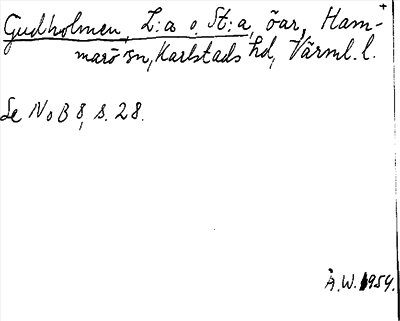 Gudholmen, L:a o. St:a, öar, Ham-
marö sn, Karlstads hd, Värml. l.
Se NoB 8, s. 28.
Å.W. 1954.